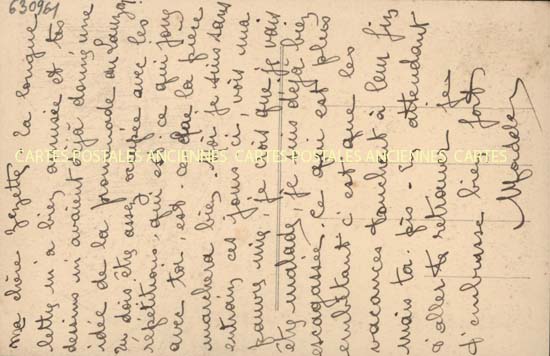 630961
ma chère Zézette, ta longue
lettre m'a bien amusée et tes
dessins m'avaient déjà donné une
idée de la promenade au
Tu dois être assez occupée avec les
répétitions, qui est-ce qui joue
avec toi, est-ce que la pièce
marchera bien. Moi je suis sans
entrain ces jours ci, vois ma
pauvre mie, je crois que je vais
être malade, je suis déjà bien
esquintée. Ce qui est plus
embêtant c'est que les
vacances touchent à leur fin
mais tant pis. En attendant
d'aller te retrouver je
t'embrasse bien fort
CARTES POSTALES ANCIENNES CARTES POSTALES ANCIENNES CARTES